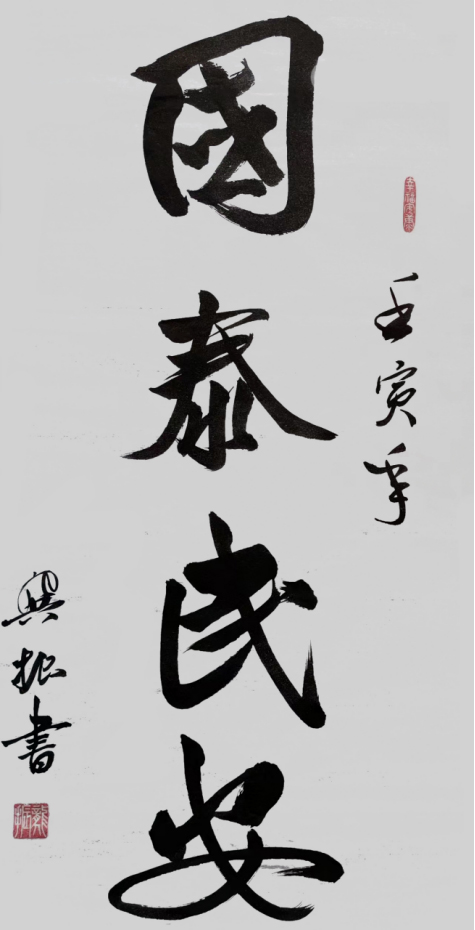 壬寅年
國泰民安
振書